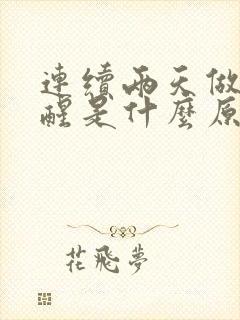 連續兩天做
醒是什麼原
花飛夢